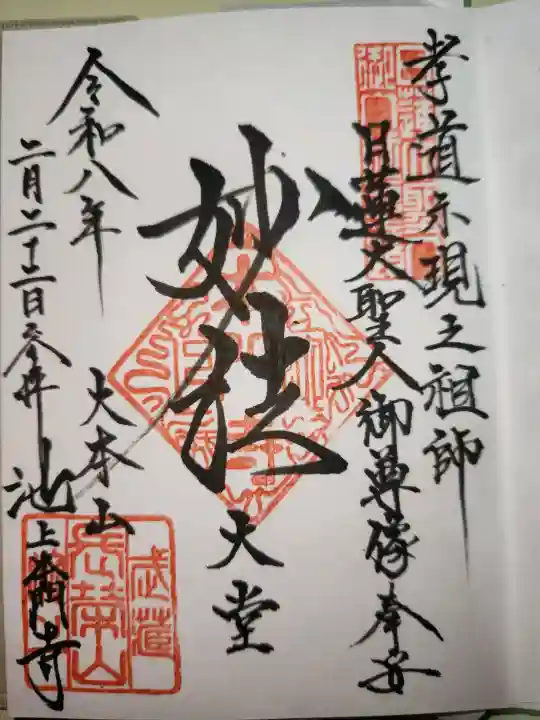 孝道示現之祖師
日蓮大聖人御尊像奉安
妙法
大堂
令和八年
二月二十二日参拝
大本山
池上本門寺
武蔵
長栄山